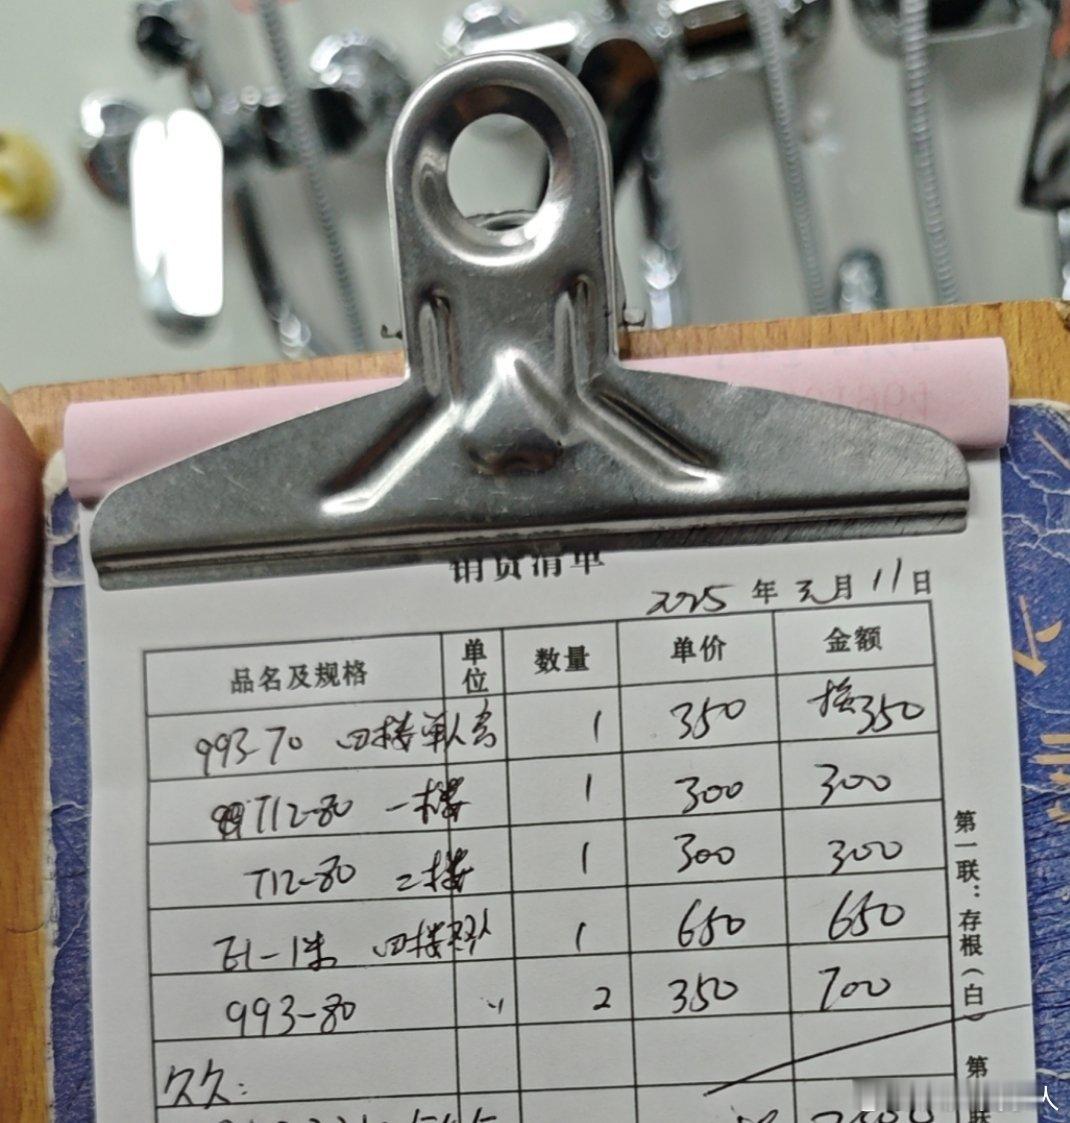 销货清单
2025 年 3 月 11 日
品名及规格 单位 数量 单价 金额
993-70 四楼单人房 1 350 350
T12-80 一楼 1 300 300
T12-80 二楼 1 300 300
四楼双人 1 650 650
993-80 〃 2 350 700
久久:
第一联:存根(白)
第
人